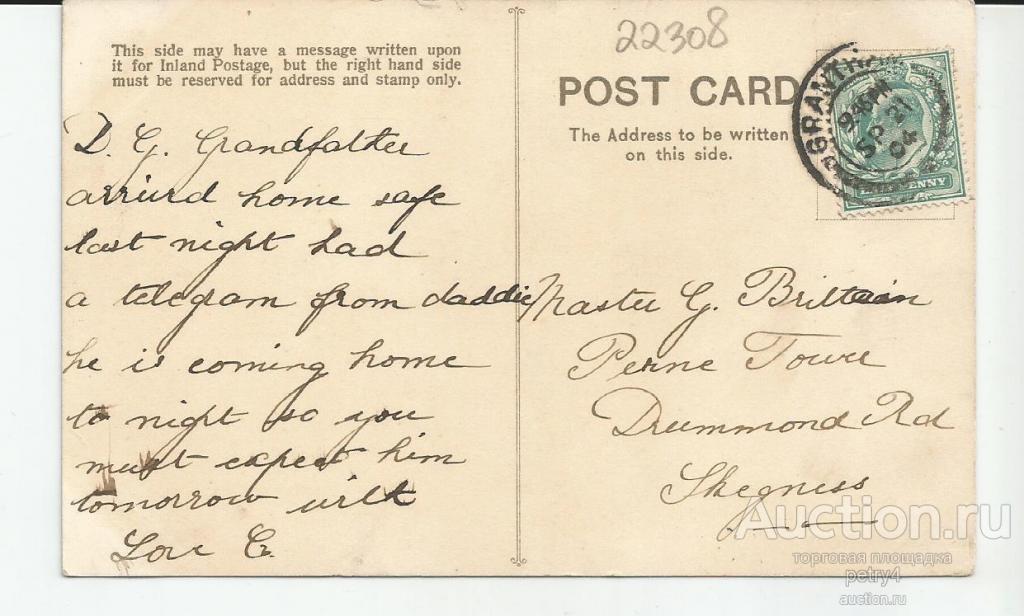 22308
This side may have a message written upon
it for Inland Postage, but the right hand side
must be reserved for address and stamp only.
POST CARD
The Address to be written
on this side.
GRANTHAM
9.45PM
SP 21
04
PENNY
D. G. Grandfather
arrivd home safe
last night had
a telegram from daddie
he is coming home
to night so you
must expect him
tomorrow
Love G.
Master G. Brittain
Perne Towre
Drummond Rd
Skegness
Auction.ru
торговая площадка
petry4
auction.ru